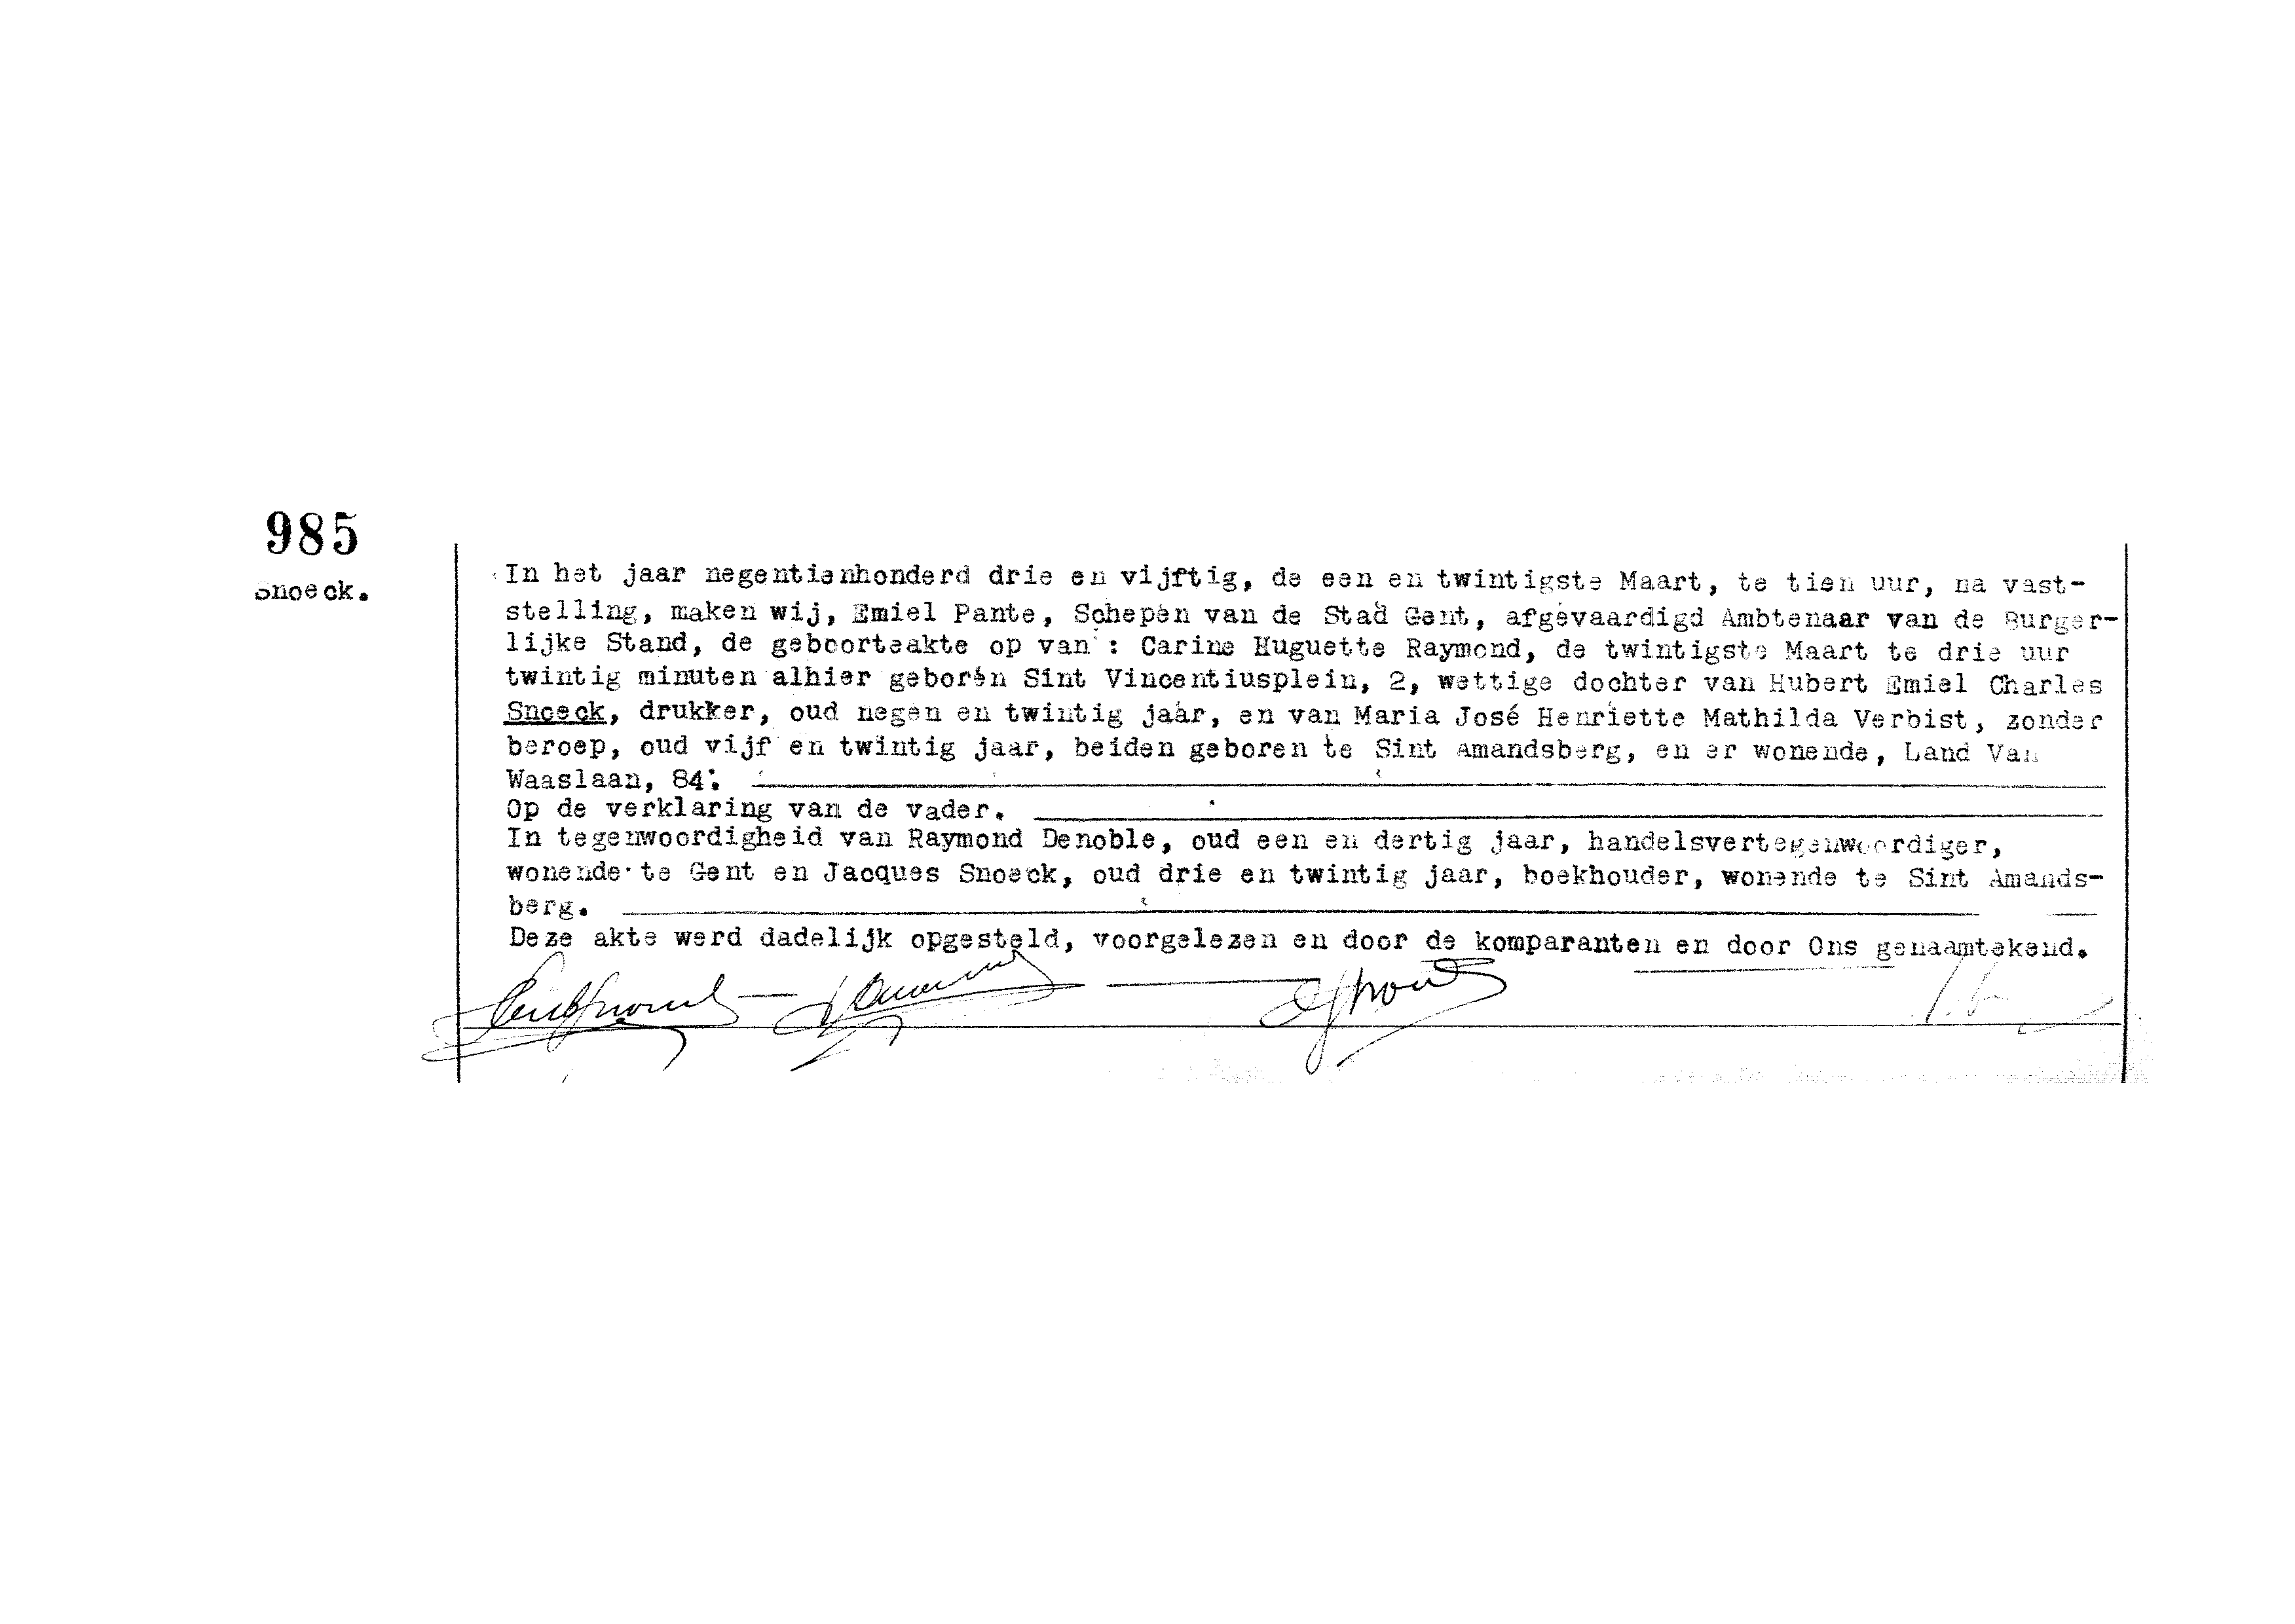 985
Snoeck.
In het jaar negentienhonderd drie en vijftig, de een en twintigste Maart, te tien uur, na vast-
stelling, maken wij, Emiel Pante, Schepen van de Stad Gent, afgevaardigd Ambtenaar van de Burger-
lijke Stand, de geboorteakte op van : Carine Huguette Raymond, de twintigste Maart te drie uur
twintig minuten alhier geboren Sint Vincentiusplein, 2, wettige dochter van Hubert Emiel Charles
Snoeck, drukker, oud negen en twintig jaar, en van Maria José Henriette Mathilda Verbist, zonder
beroep, oud vijf en twintig jaar, beiden geboren te Sint Amandsberg, en er wonende, Land Van
Waaslaan, 84.
Op de verklaring van de vader.
In tegenwoordigheid van Raymond Denoble, oud een en dertig jaar, handelsvertegenwoordiger,
wonende te Gent en Jacques Snoeck, oud drie en twintig jaar, boekhouder, wonende te Sint Amands-
berg.
Deze akte werd dadelijk opgesteld, voorgelezen en door de komparanten en door Ons genaamtekend.